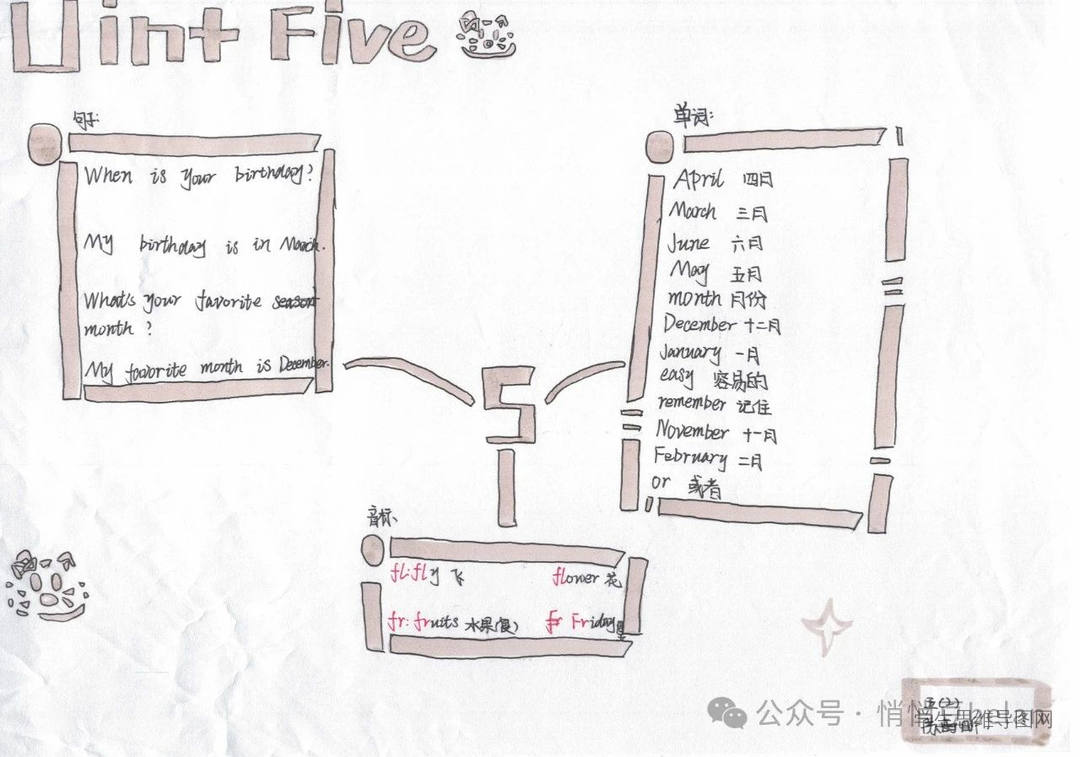 Uint Five
句子:
When is your birthday?
My birthday is in March.
What's your favorite season
month ?
My favorite month is December.
单词:
April 四日
March 三月
June 六月
May 五月
month 月份
December 十二月
January 一月
easy 容易的
remember 记住
November 十一月
February 二月
or 或者
5
音标:
fl: fly 飞 flower 花
fr: fruits 水果(复) fr Friday
五(2)
公众号 · 悄悄